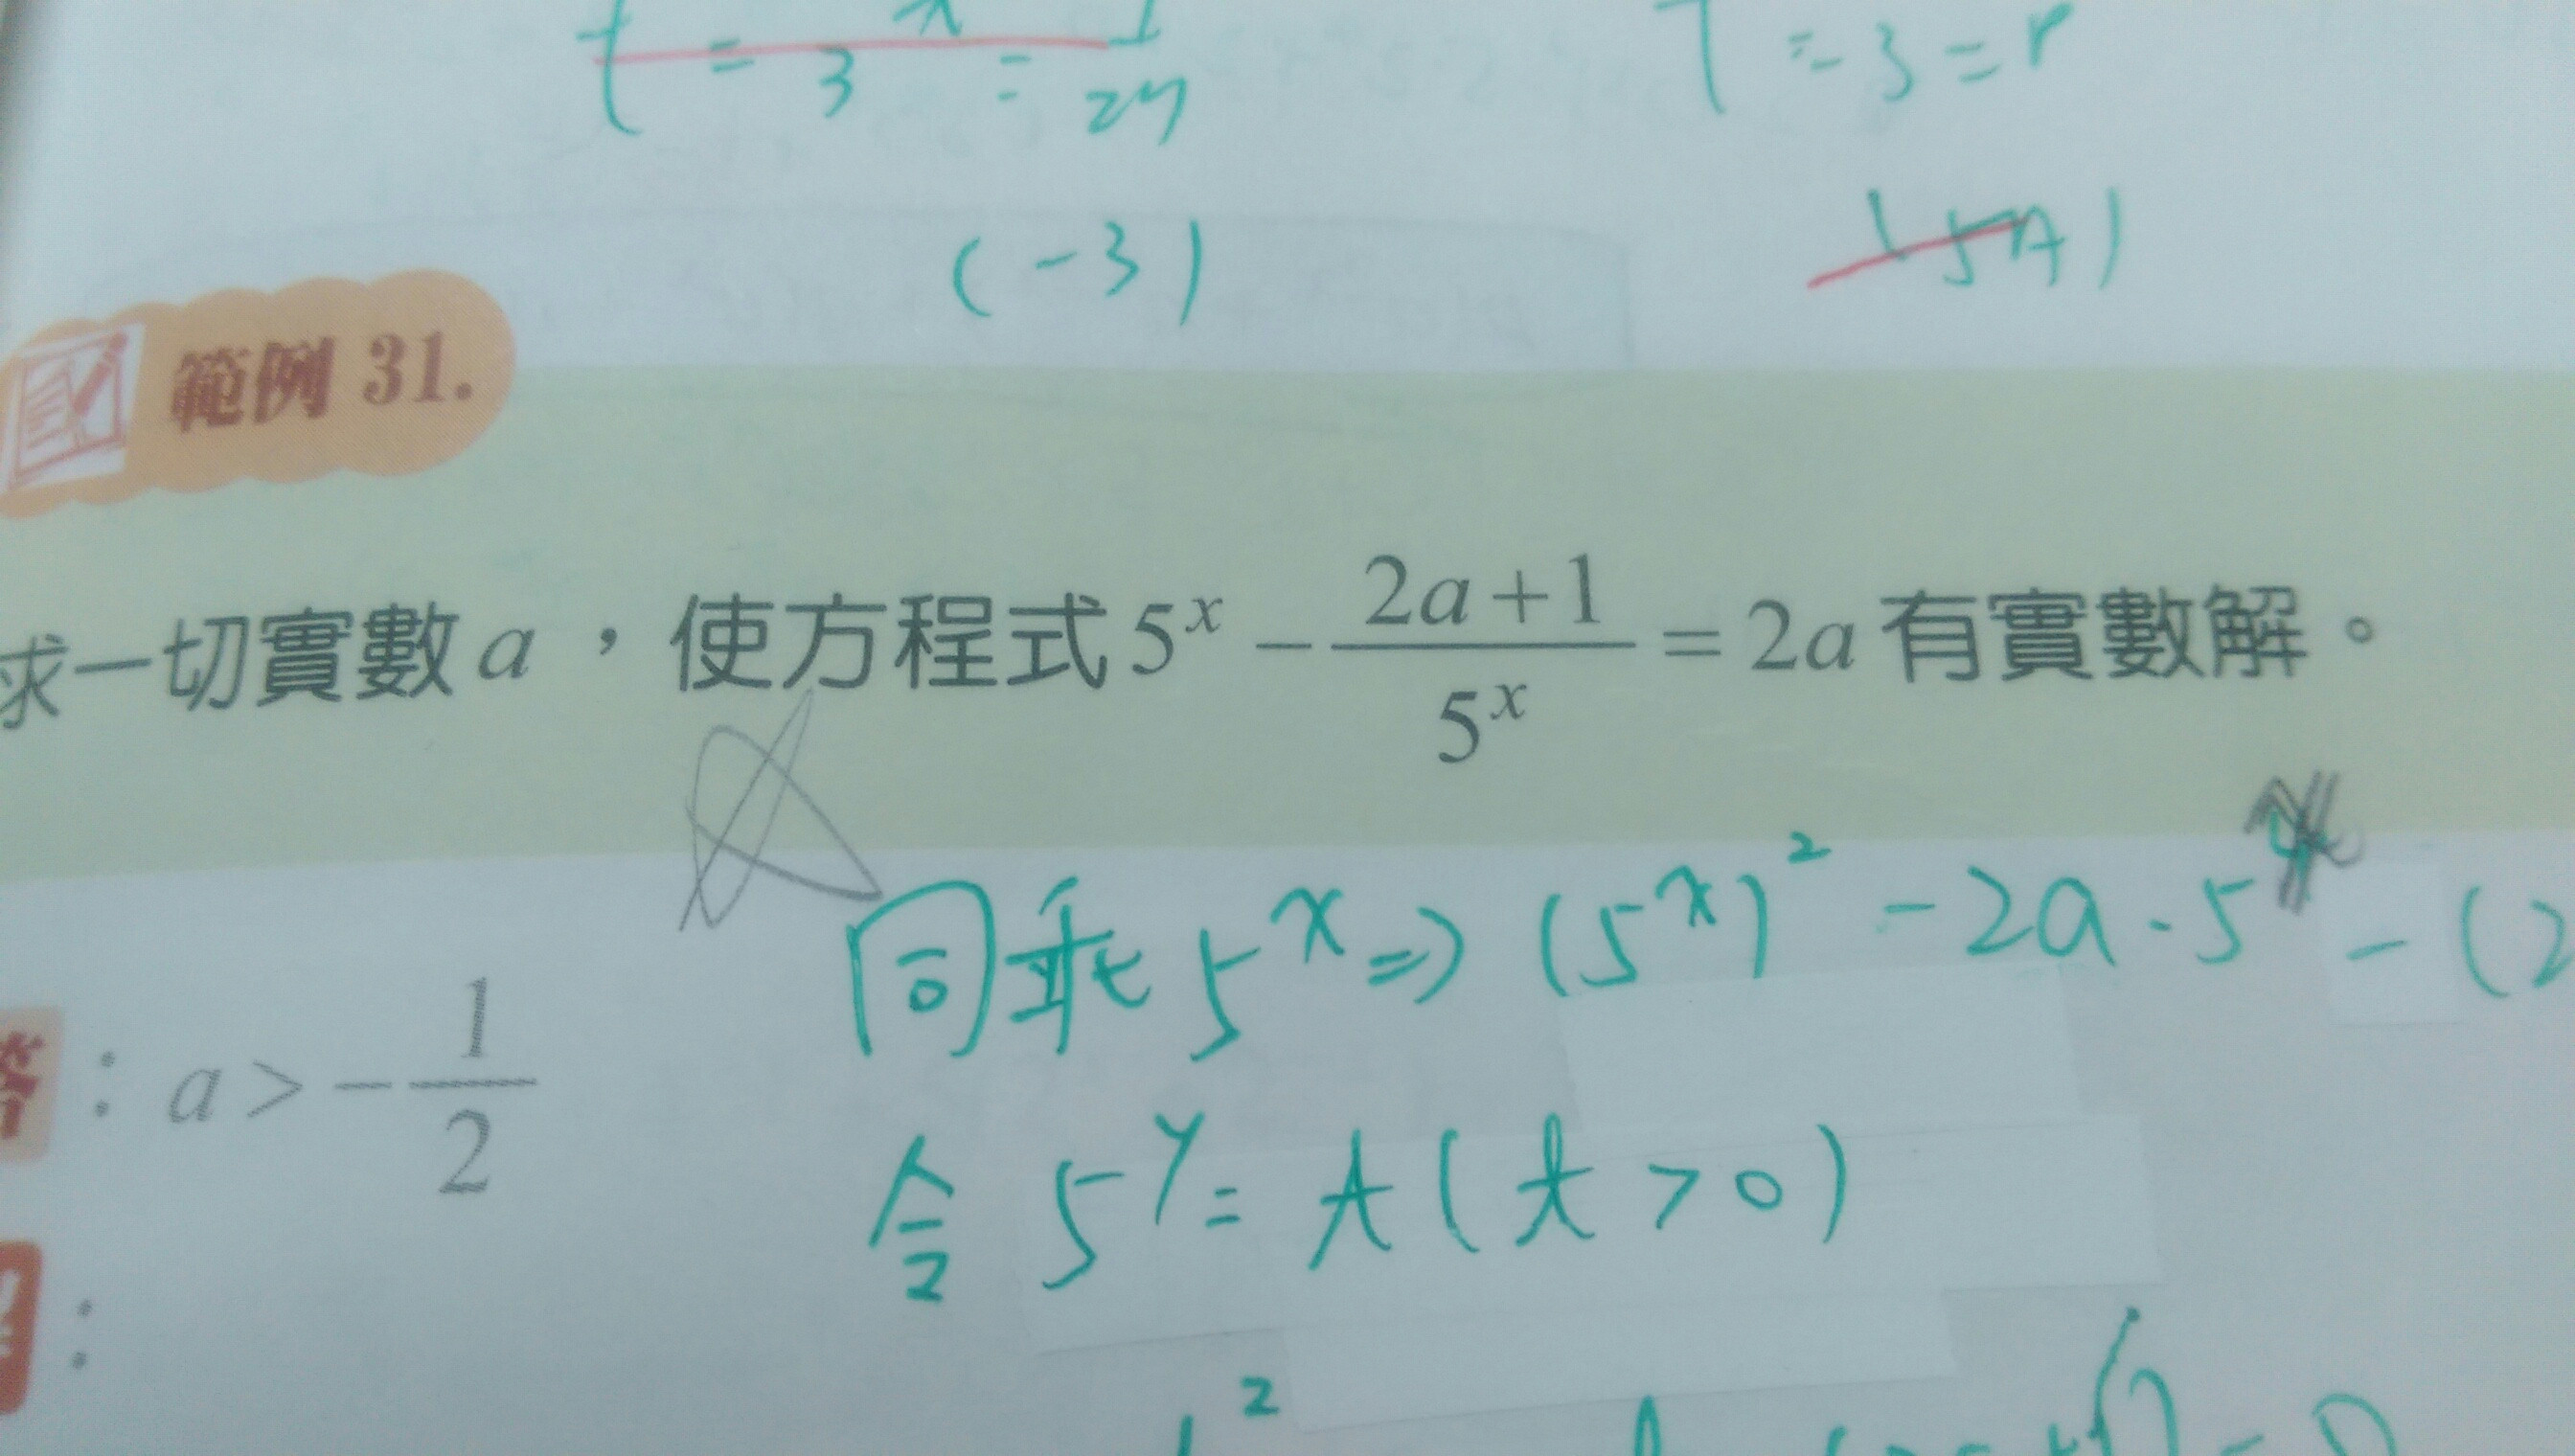 = 3 = 1/27
= 3 = r
(-3)
範例 31.
求一切實數 a，使方程式 5^x - (2a+1)/5^x = 2a 有實數解。
同乘 5^x ⇒ (5^x)^2 - 2a · 5 - (2
答：a > -1/2
令 5^y = t (t > 0)
：
2
= 0